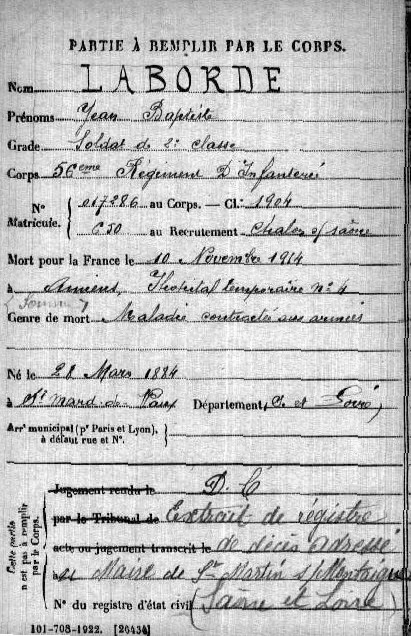 PARTIE À REMPLIR PAR LE CORPS.
Nom LABORDE
Prénoms Jean Baptiste
Grade Soldat de 2e classe
Corps 56eme Régiment D'Infanterie
N° 017286 au Corps. — Cl: 1904
Matricule. 650 au Recrutement Chalon s/saône
Mort pour la France le 10 Novembre 1914
à Amiens, Hôpital temporaire n° 4
(Somme)
Genre de mort Maladie contractée aux armées
Né le 28 Mars 1884
à St mard-de-Vaux Département S. et Loire
Arrt municipal (pr Paris et Lyon),
à défaut rue et N°.
Cette partie
n'est pas à remplir
par le Corps.
Jugement rendu le D. C
par le Tribunal de Extrait de régistre
acte ou jugement transcrit le de décès adressé
à Maire de St Martin s/
N° du registre d'état civil (Saône et Loire)
101-708-1922. [26434]